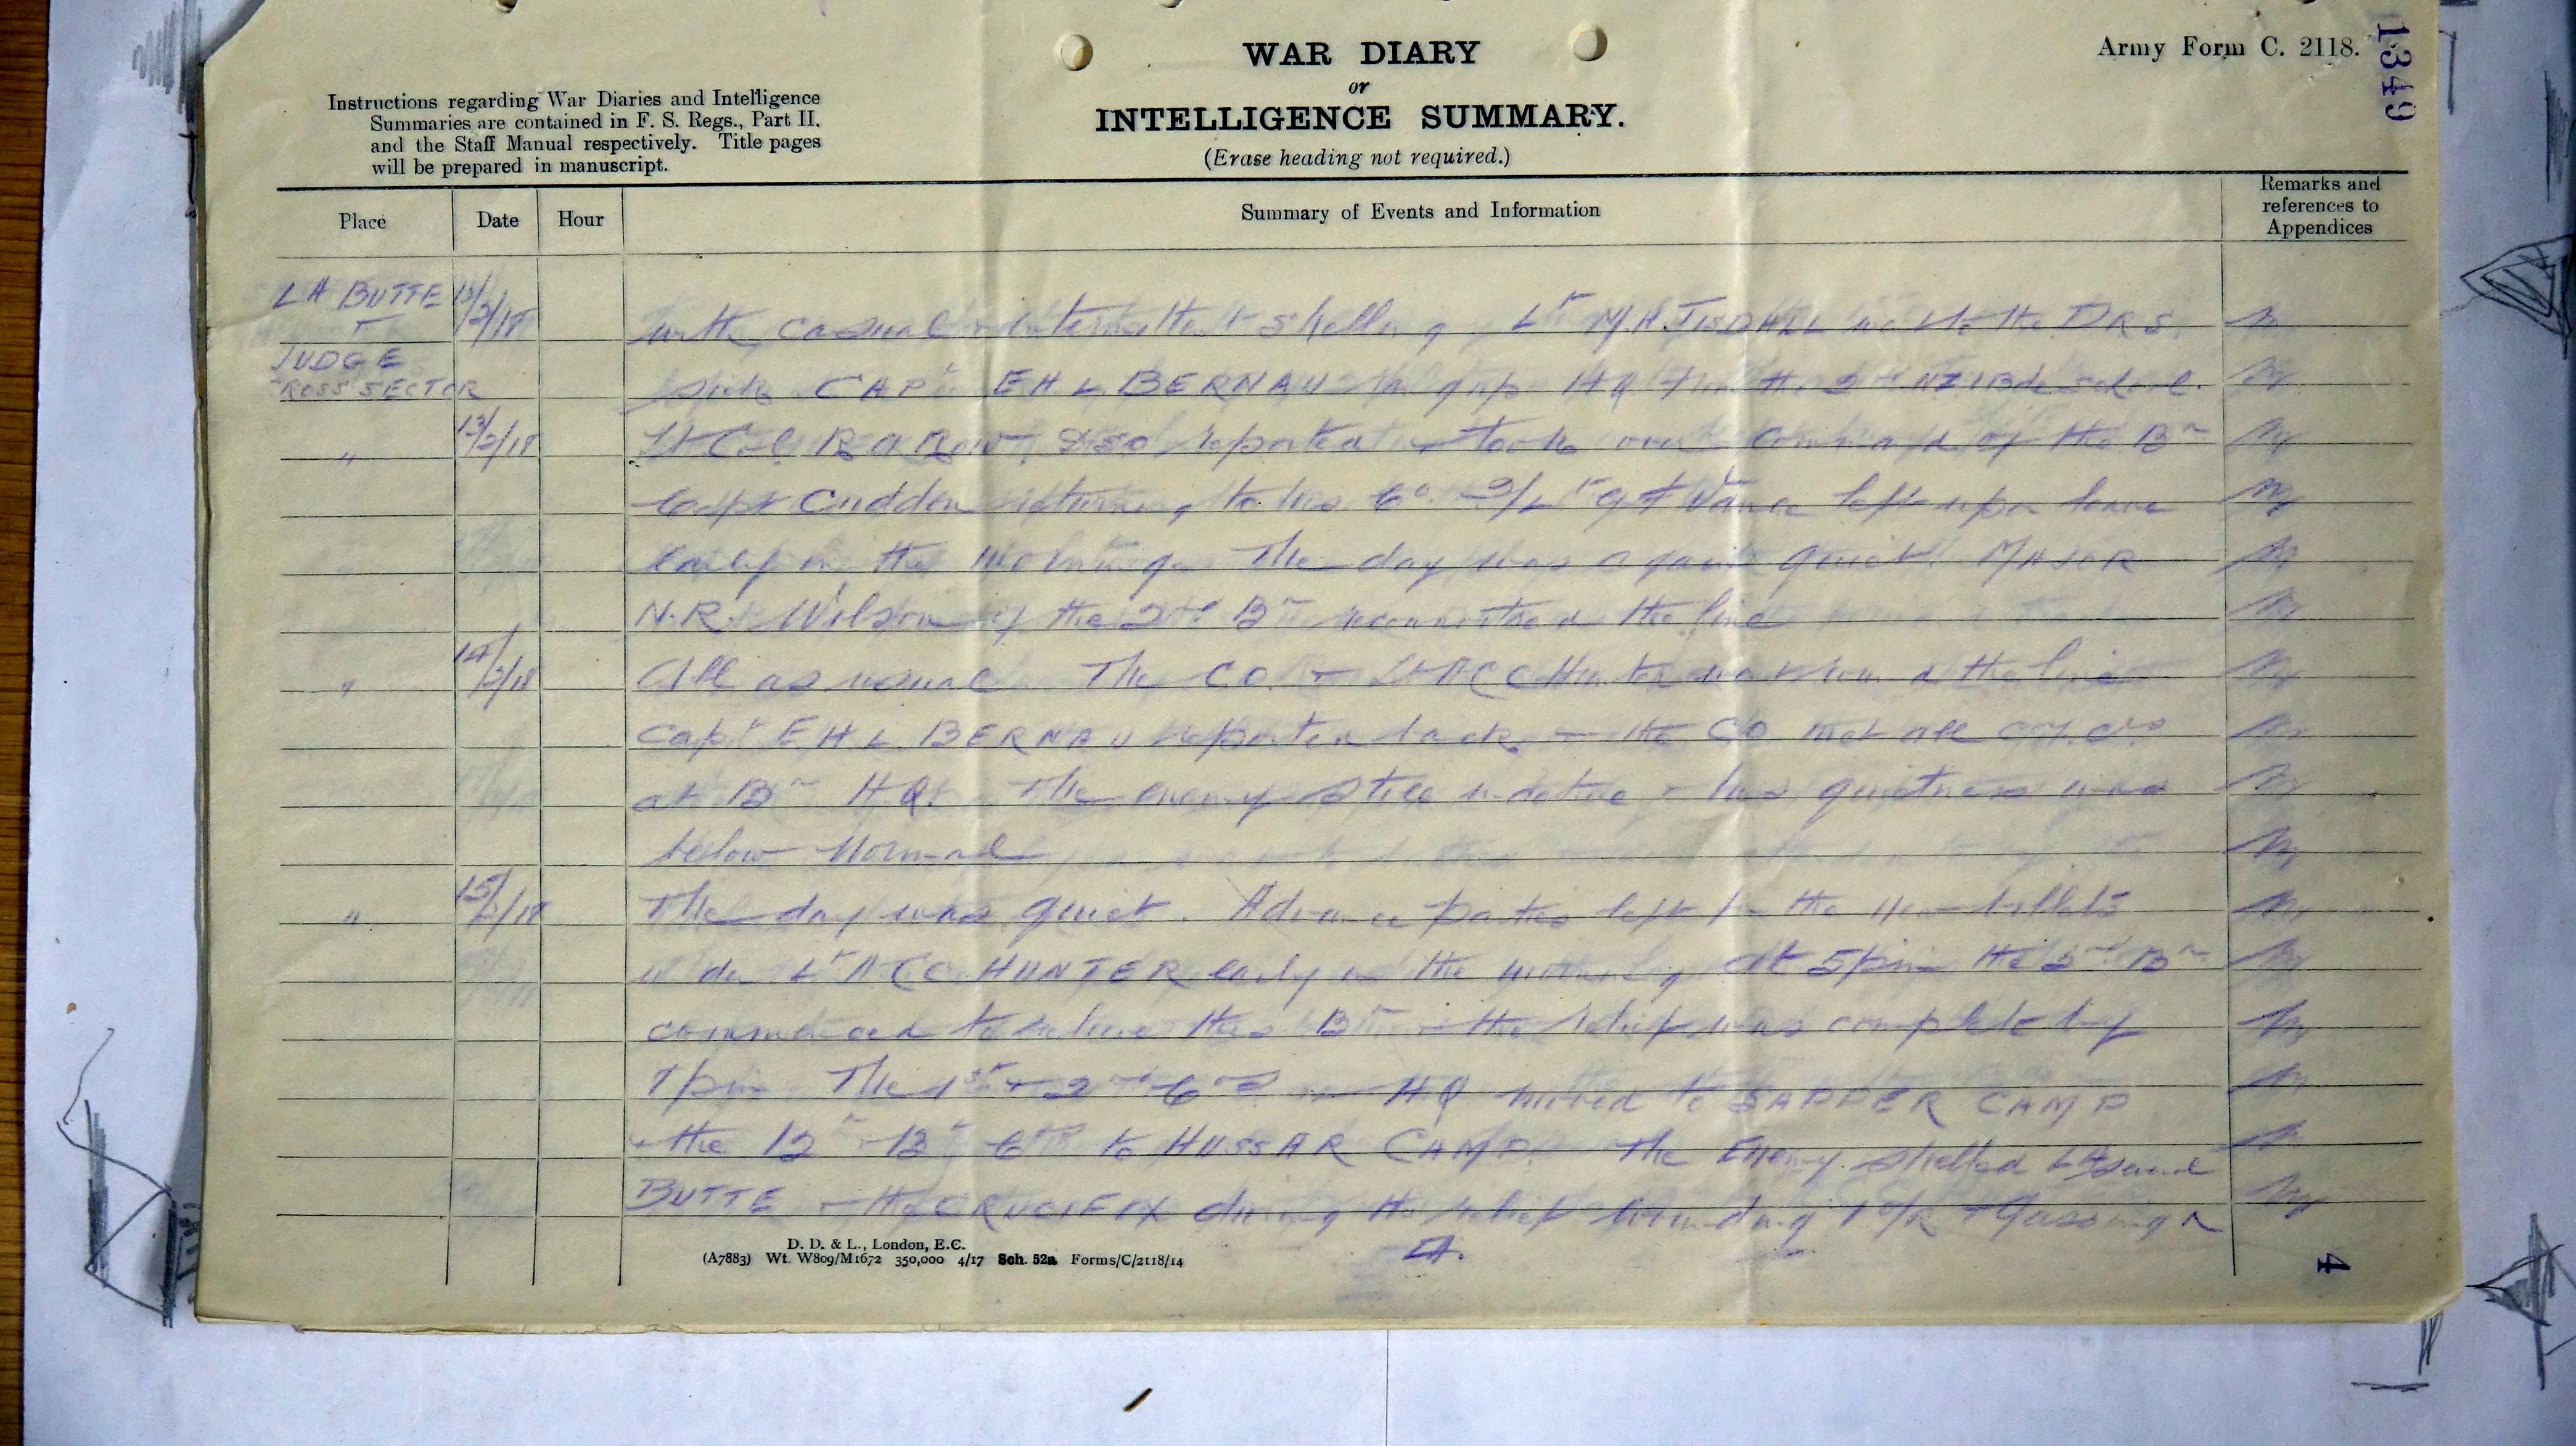 WAR DIARY
or
INTELLIGENCE SUMMARY.
(Erase heading not required.)
Army Form C. 2118.
1349
Instructions regarding War Diaries and Intelligence
Summaries are contained in F. S. Regs., Part II.
and the Staff Manual respectively. Title pages
will be prepared in manuscript.
Place Date Hour Summary of Events and Information Remarks and references to Appendices
LA BUTTE /2/18 with casual + intermittent shelling Lt M.H. to the DRS
JUDGE
CROSS SECTOR sick CAPt EHL BERNAU HQ the 2nd NZ I Bde School.
" 13/2/18 Lt Col R A Row DSO reported + took over command of the Bn
Capt Cudden returning to his Co. 2/Lt left upon leave
early in the morning. The day was again quiet. MAJOR
N.R. Wilson of the 2nd Bn reconnoitred the line
" 14/2/18 All as usual. The C.O. + Lt ACC Hunter went round the line
Capt EHL BERNAU reported back + the CO met all coy. crs
at Bn HQ. The enemy still his quietness was
below normal
" 15/2/18 The day was quiet. Advance parties left for the new billets
under Lt ACC HUNTER early in the morning At 5pm the 2nd Bn
commenced to relieve this Bn + the relief was complete by
pm The 1st + 2nd Cos + HQ moved to SAPPER CAMP
+ the 12 + 13 Cos to HUSSAR CAMP. The Enemy shelled LA
BUTTE + the CRUCIFIX during the relief wounding 1 O/R + Gassing
D. D. & L., London, E.C.
(A7883) Wt. W809/M1672 350,000 4/17 Sch. 52a Forms/C/2118/14
4